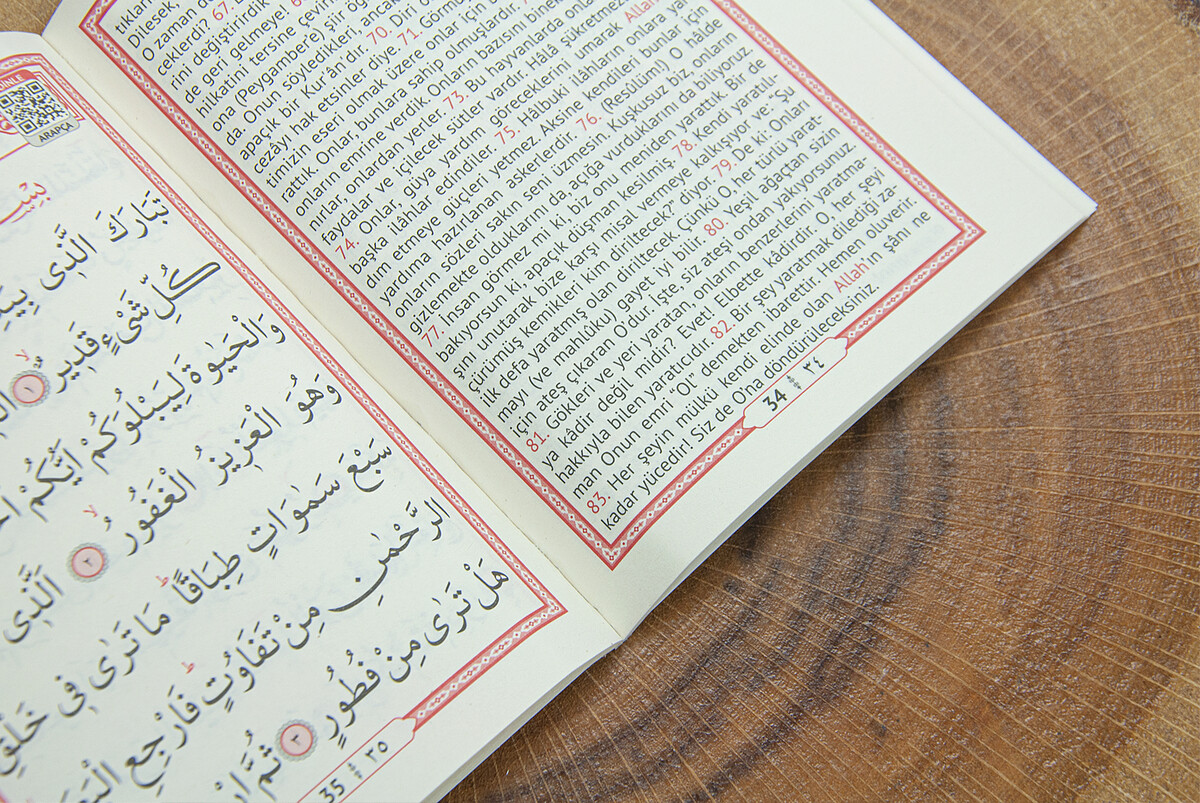 Dilesek,
O zaman
eklerdi? 67.
rini değiştirirdik
de geri gelmeye.
hilkatini tersine
ona (Peygambere) şiir
da. Onun söyledikleri,
apaçık bir Kur'ân'dır. 70. Diri
cezâyı hak etsinler diye. 71.
timizin eseri olmak üzere onlar için
rattık. Onlar, bunlara sahip olmuşlardır.
onların emrine verdik. Onların bazısını
nırlar, onlardan yerler. 73. Bu hayvanlarda
faydalar ve içilecek sütler vardır. Hâlâ
74. Onlar, güya yardım göreceklerini umarak Allah
başka ilâhlar edindiler. 75. Hâlbuki ilâhların onlara yar-
dım etmeye güçleri yetmez. Aksine kendileri bunlar için
yardıma hazırlanan askerlerdir. 76. (Resûlüm!) O hâlde
onların sözleri sakın seni üzmesin. Kuşkusuz biz onların
gizlemekte olduklarını da, açığa vurduklarını da biliyoruz.
77. İnsan görmez mi ki, biz onu meniden yarattık. Bir de
bakıyorsun ki, apaçık düşman kesilmiş. 78. Kendi yaratılı-
şını unutarak bize karşı misal vermeye kalkışıyor ve: "Şu
çürümüş kemikleri kim diriltecek?" diyor. 79. De ki: Onları
ilk defa yaratmış olan diriltecek. Çünkü O, her türlü yarat-
mayı (ve mahlûku) gayet iyi bilir. 80. Yeşil ağaçtan sizin
için ateş çıkaran O'dur. İşte, siz ateşi ondan yakıyorsunuz.
81. Gökleri ve yeri yaratan, onların benzerlerini yaratma-
ya kâdir değil midir? Evet! Elbette kâdirdir. O, her şeyi
hakkıyla bilen yaratıcıdır. 82. Bir şey yaratmak dilediği za-
man Onun emri "Ol" demekten ibarettir. Hemen oluverir.
83. Her şeyin mülkü kendi elinde olan Allah'ın şânı ne
kadar yücedir! Siz de O'na döndürüleceksiniz.
34 ٣٤
DİNLE
ARAPÇA
تَبَارَكَ الَّذٖى
كُلِّ شَىْءٍ قَدٖيرٌ ١
وَالْحَيٰوةَ لِيَبْلُوَكُمْ اَيُّكُمْ
وَهُوَ الْعَزٖيزُ الْغَفُورُ ٢ اَلَّذٖى
سَبْعَ سَمٰوَاتٍ طِبَاقًا مَا تَرٰى فٖى خَلْقِ
الرَّحْمٰنِ مِنْ تَفَاوُتٍ فَارْجِعِ
هَلْ تَرٰى مِنْ فُطُورٍ ٣ ثُمَّ
35 ٣٥